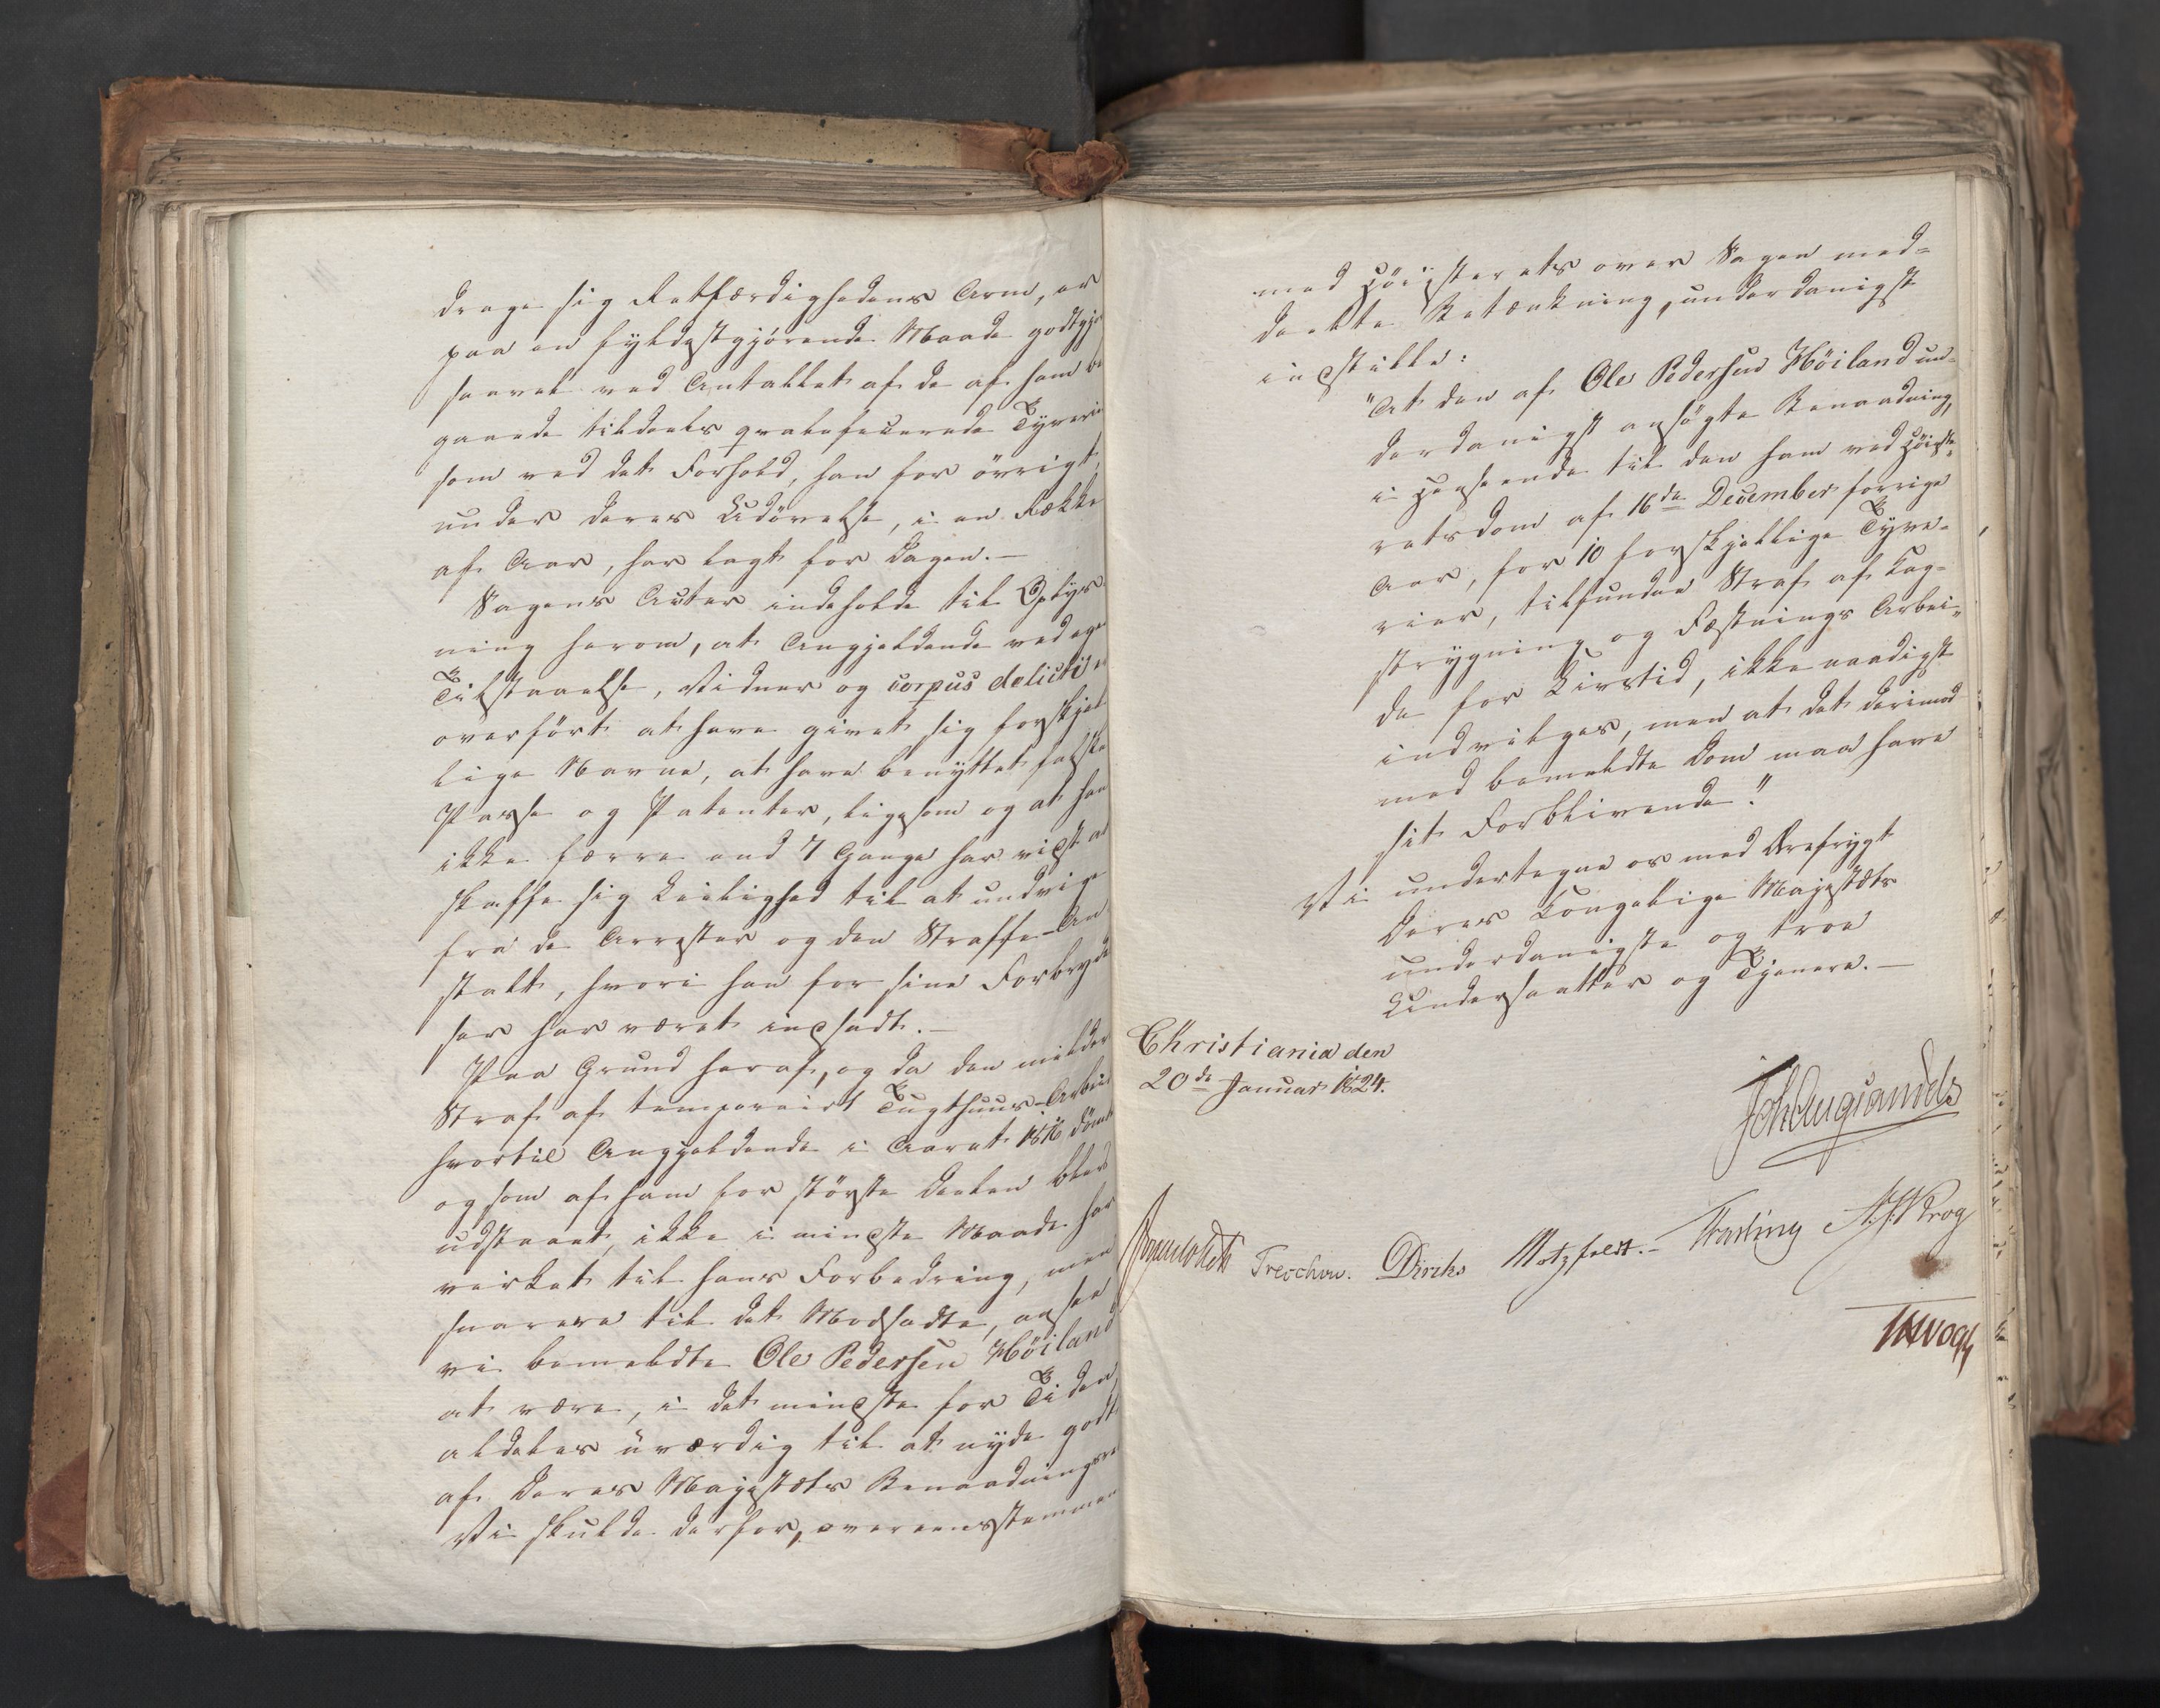 drage sig Retfærdighedens Arm, er
paa en fyldestgjørende Maade godtgjo
saavel ved Antallet af de af ham be
gaaede tildeels qvalificerede Tyverie
som ved det Forhold, han for övrigt,
under deres Udövelse, i en Række
af Aar, har lagt for Dagen.-
Sagens Acter indeholde til Oplys
ning herom, at Angjeldende ved egen
Tilstaaelse, Vidner og corpus delicti er
overført at have givet sig forskjel
lige Navne, at have benyttet falske
Passe og Patenter, ligesom og at han
ikke færre end 7 Gange har vidst at
skaffe sig Leilighed til at undvige
fra de Arrester og den Straffe-An
stalt, hvori han for sine Forbryde
ser har været indsadt.-
Paa Grund heraf, og da den mildere
Straf af temporairt Tugthuus-Arbeid
hvortil Angjeldende i Aaret 1816 dömt
og som af ham for störste Deelen blev
udstaaet, ikke i mindste Maade har
virket til hans Forbedring, men
snarere til det Modsadte, ansee
vi bemeldte Ole Pedersen Höiland
at være, i det mindste for Tiden
aldeles uværdig til at nyde godt
af Deres Majestæts Benaadningsre
Vi skulde derfor, overeensstemmen
med Höiesterets over Sagen med-
deelte Betænkning, underdanigst
indstille:
"At den af Ole Pedersen Höiland un-
derdanigst ansögte Benaadning,
i Henseende til den ham ved Höieste-
retsdom af 16de December forrige
Aar, for 10 forskjellige Tyve-
rier, tilfundne Straf af Kag-
strygning og Fæstnings Arbei-
de for Livstid, ikke naadigst
indvilges, men at det derimod
med bemeldte Dom maa have
sit Forblivende."
Vi undertegne os med Ærefrygt
Deres Kongelige Majestæts
underdanigste og troe
Undersaatter og Tjenere.-
Christiania den
20de Januar 1824.
Joh Aug Sandels
Sommerhielm Treschow. Diriks Motzfeldt.- Fasting A. J. Krog
J H Vogt